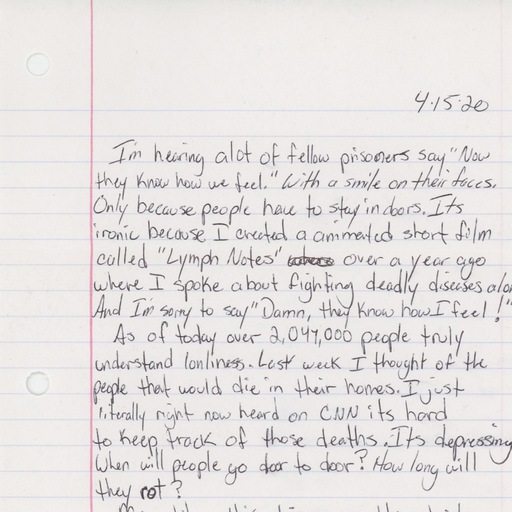 4·15·20
I'm hearing alot of fellow prisoners say "Now
they know how we feel." With a smile on their faces.
Only because people have to stay indoors. Its
ironic because I created a animated short film
called "Lymph Notes" over a year ago
where I spoke about fighting deadly diseases alon
And I'm sorry to say "Damn, they know how I feel!"
As of today over 2,047,000 people truly
understand lonliness. Last week I thought of the
people that would die in their homes. I just
literally right now heard on CNN its hard
to keep track of those deaths. Its depressing
When will people go door to door? How long will
they rot?